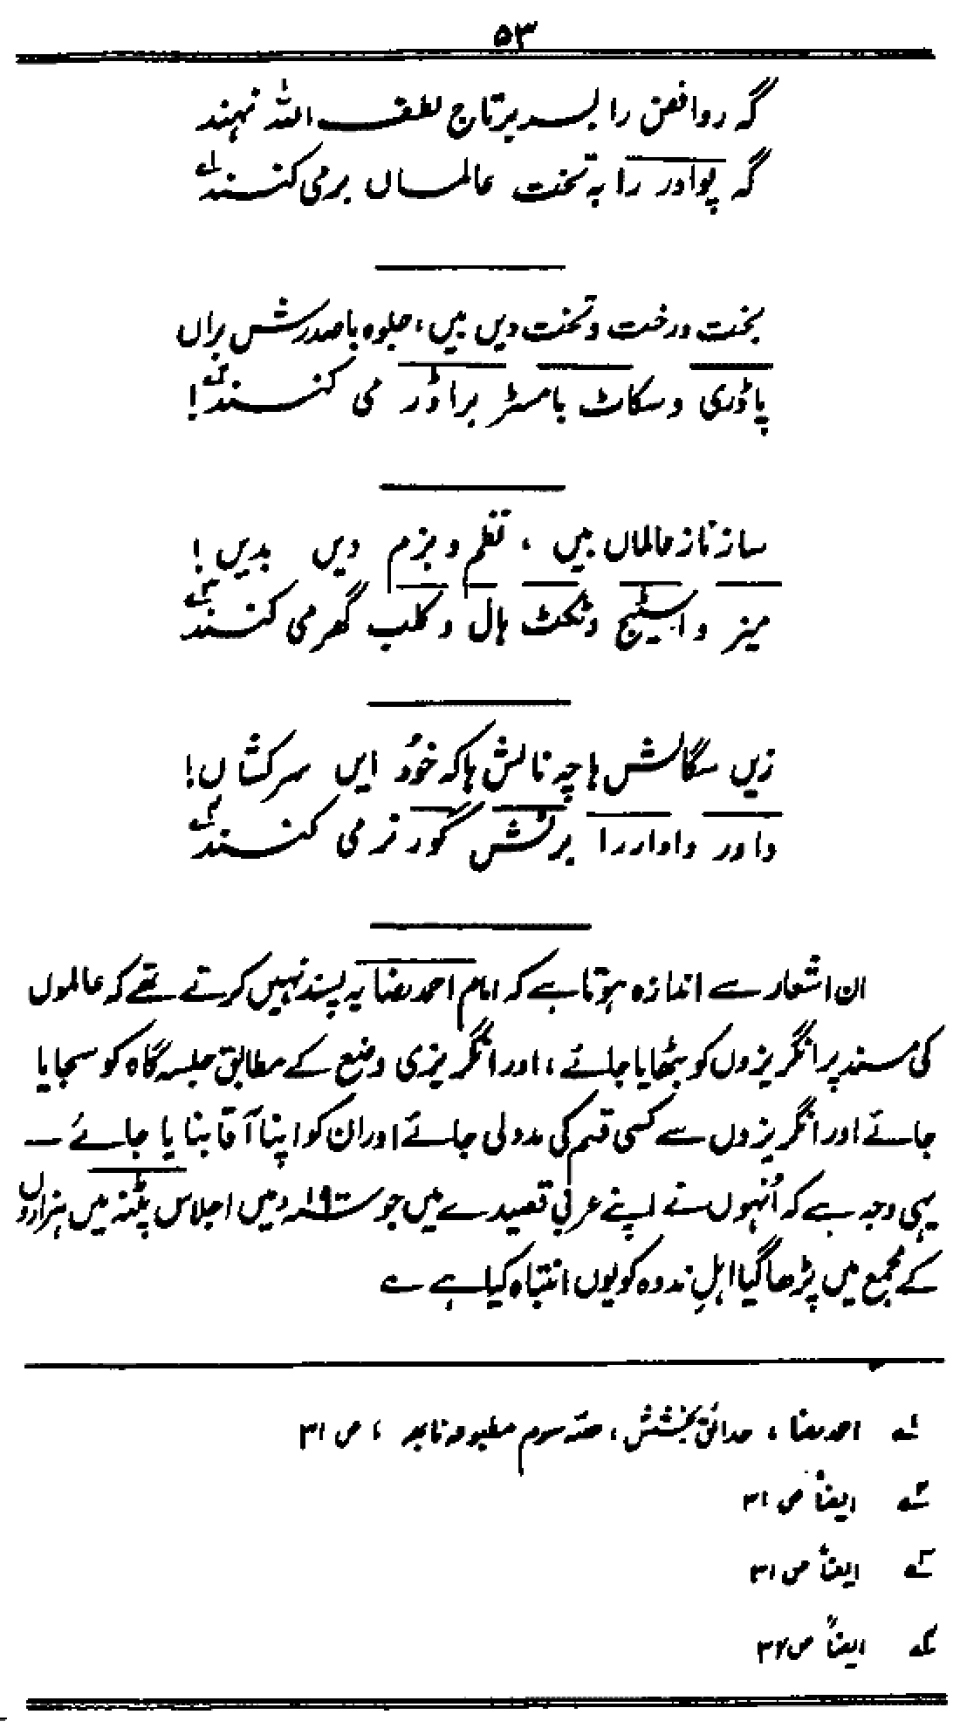 ۵۳
گہ روافض را بسر بر تاج لطف اللہ نہند
گہ پوادر را بہ تخت عالماں بر می کنند لہ
بخت ورخت وتخت دیں بیں، جلوہ با صدرش براں
پاڈری وسکاٹ با مسٹر براڈر می کنند ۲؎!
ساز ناز عالماں بیں، نظم و بزم دیں بدیں!
میز و اسٹیج و ٹکٹ ہال و کلب گھر می کنند ۳؎
زیں سگالش ہا چہ نالش ہا کہ خود ایں سرکشاں!
داور و ادار را برٹش گورنر می کنند ۴؎
ان اشعار سے اندازہ ہوتا ہے کہ امام احمد رضا یہ پسند نہیں کرتے تھے کہ عالموں
کی مسند پر انگریزوں کو بٹھایا جائے، اور انگریزی وضع کے مطابق جلسہ گاہ کو سجایا
جائے اور انگریزوں سے کسی قسم کی مدد لی جائے اور ان کو اپنا آقا بنا یا جائے ۔
یہی وجہ ہے کہ اُنہوں نے اپنے عربی قصیدے میں جو میں اجلاس پٹنہ میں ہزاروں
کے مجمع میں پڑھا گیا اہلِ ندوہ کو یوں انتباہ کیا ہے ؎
۱؎ احمد رضا، حدائق بخشش، حصّہ سوم مطبوعہ نابھہ، ص ۳۱
۲؎ ایضاً ص ۳۱
۳؎ ایضاً ص ۳۱
۴؎ ایضاً ص ۳۲